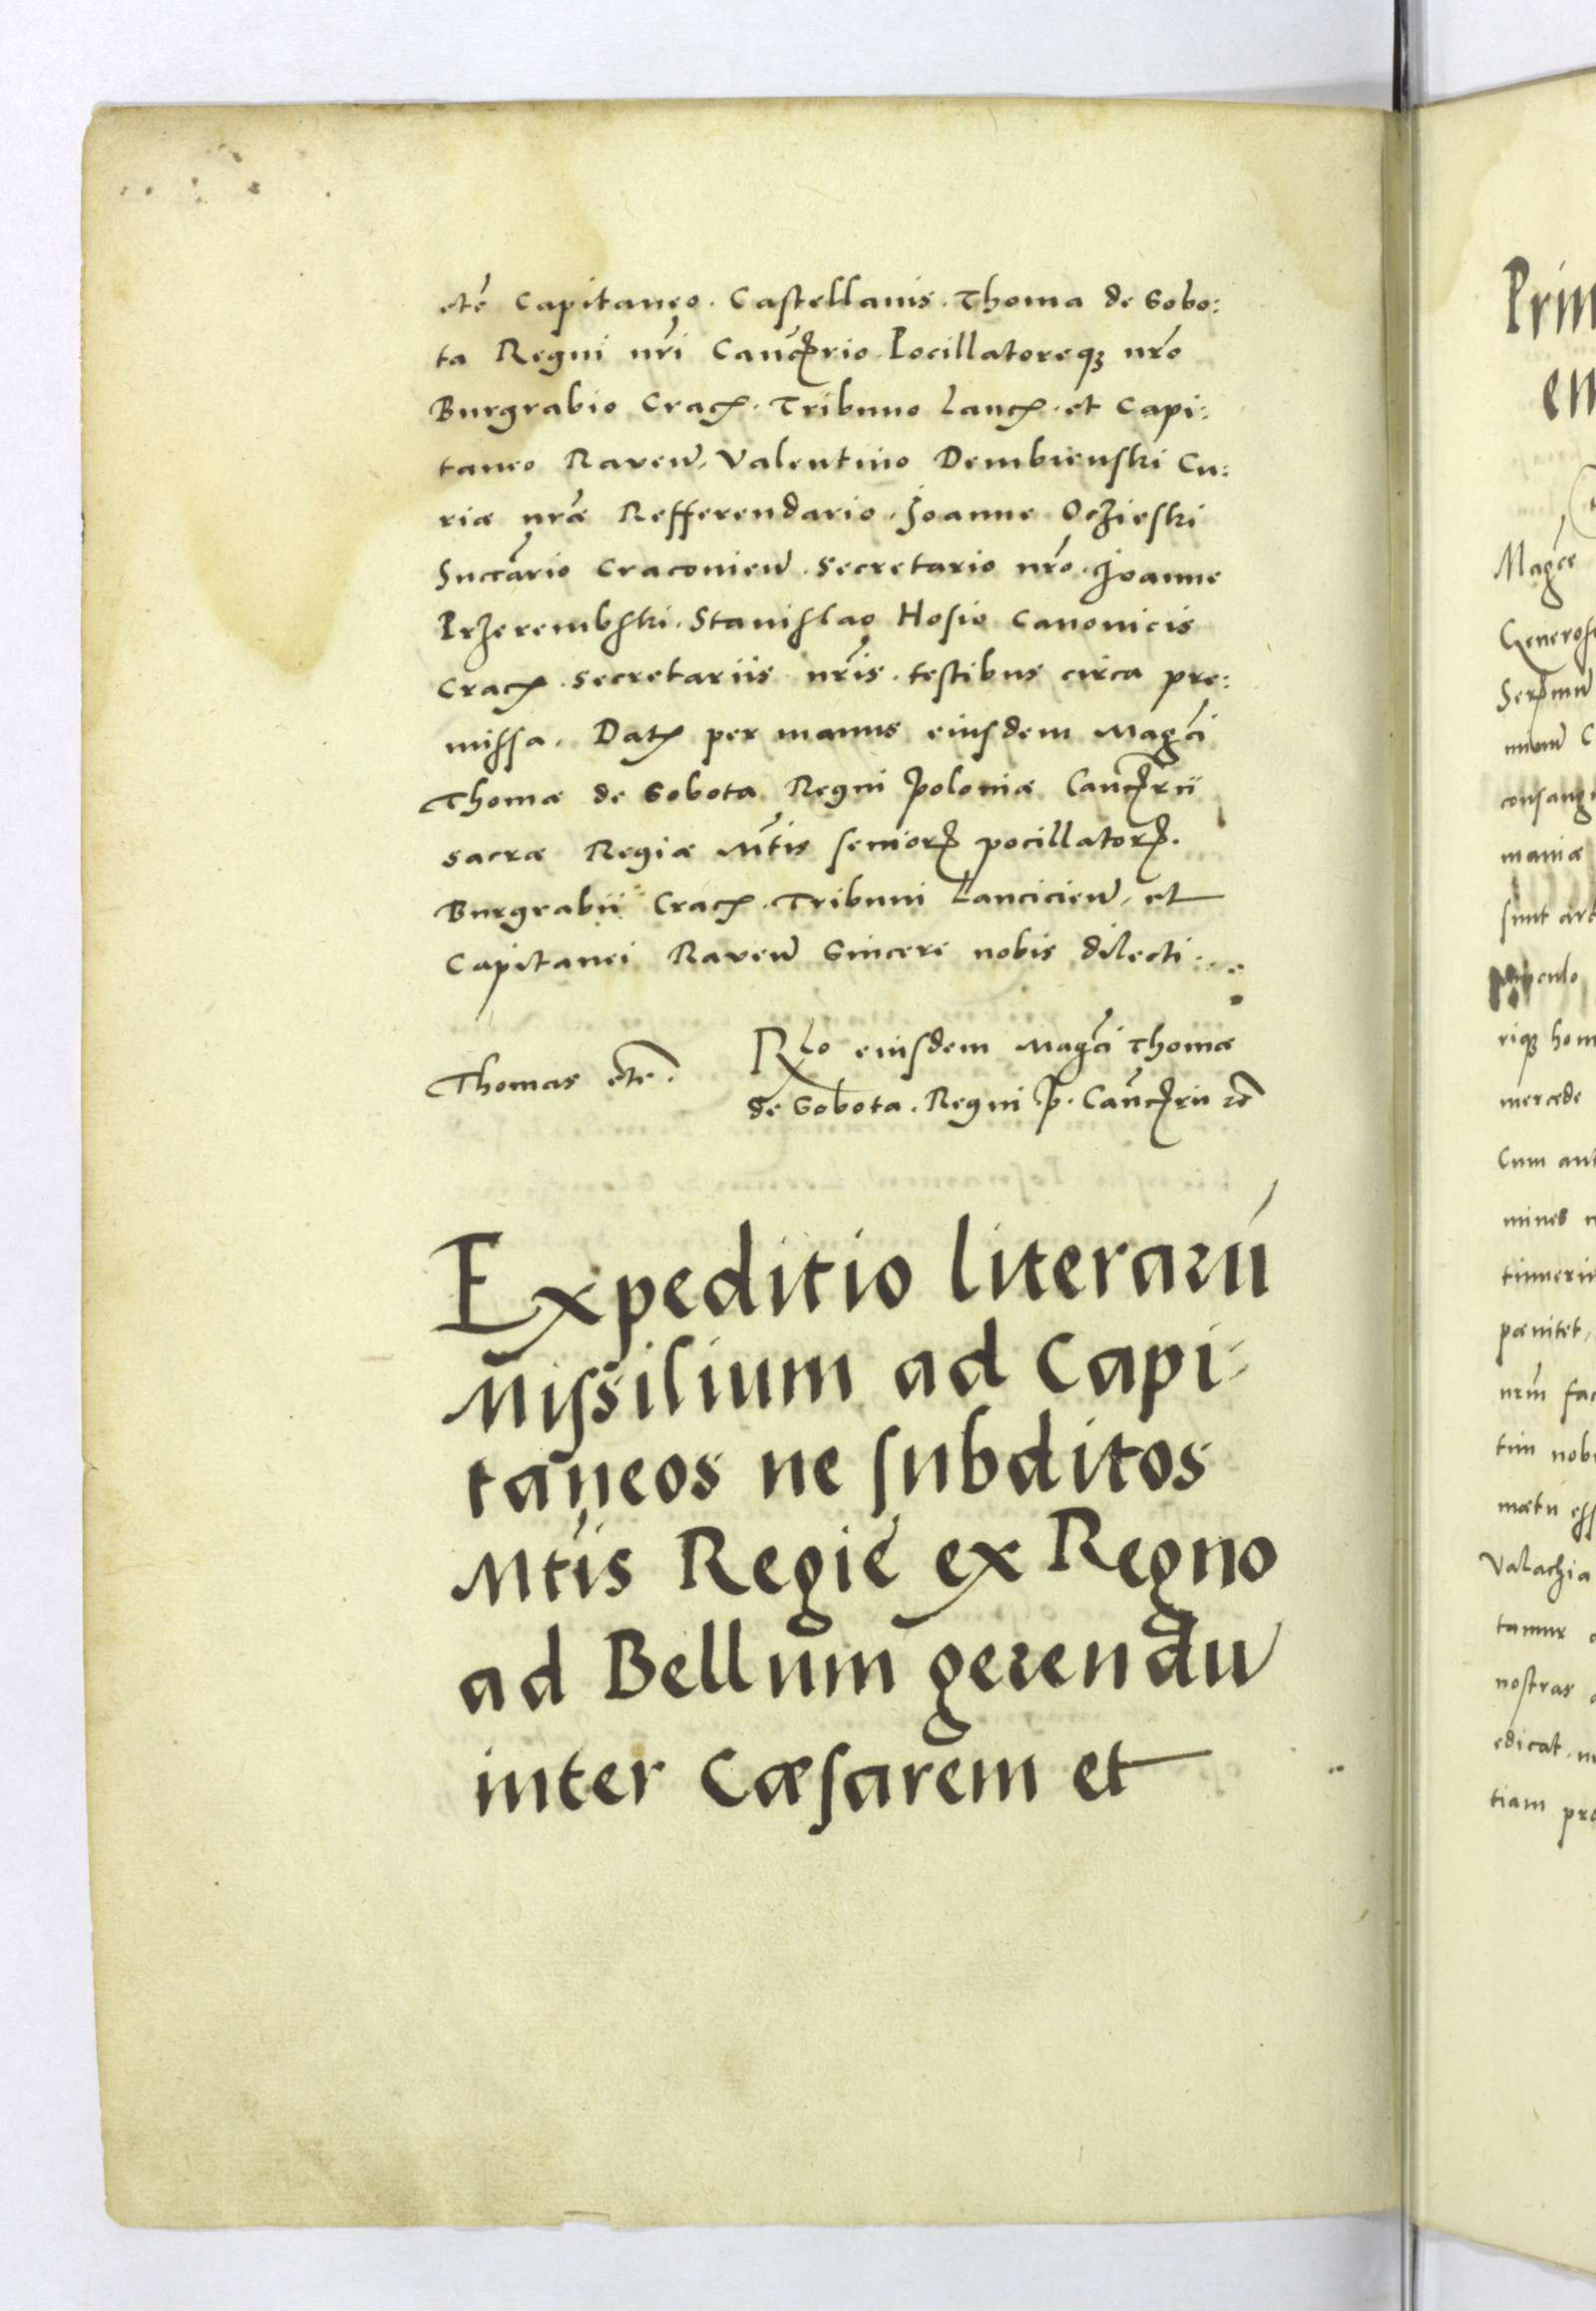 etc̃ Capitaneo. Castellanis. Thoma de Sobo:
ta Regni nr̃i Canc̃rio. Pocillatoreqꝫ nr̃o
Burgrabio Crac. Tribuno Lanc. et Capi:
taneo Raveñ. Valentino Dembienski Cu:
riæ nr̃æ Refferendario. Joanne Oczieski
Succãrio Cracovieñ. Secretario nr̃o. Joanne
Przerembski. Stanislao Hosio Canonicis
Crac. Secretariis nr̃is. testibus circa pre:
missa. Dat per manus eiusdem Magci
Thomæ de Sobota Regni Poloniæ Canc̃rii
Sacræ Regiæ Mt̃is senior pocillator.
Burgrabii Crac. Tribuni Lancicieñ. et
Capitanei Raveñ Sincere nobis dilecti
Thomas etc̃.
Rlo eiusdem Magci Thomæ
de Sobota. Regni P. Canc̃rii ꝛc̃
Expeditio literarũ
Missilium ad Capi-
taneos ne subditos
Mt̃is Regię ex Regno
ad Bellum gerendũ
inter Cæsarem et
Prim
en
Magce
mercede
Cum
pœnitet,
Valachia
nostras
edicat.
tiam